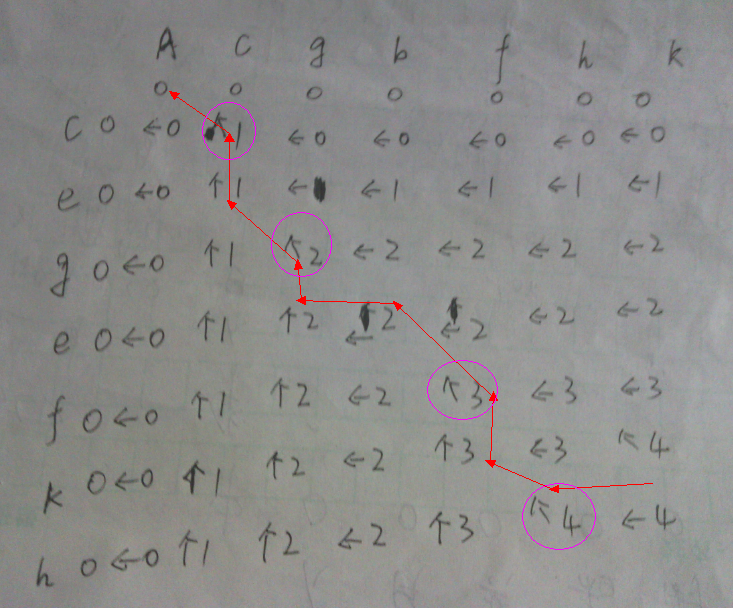 A C g b f h k
0 0 0 0 0 0 0
C 0 ←0 ↖1 ←0 ←0 ←0 ←0 ←0
e 0 ←0 ↑1 ← ←1 ←1 ←1 ←1
g 0 ←0 ↑1 ↖2 ←2 ←2 ←2 ←2
e 0 ←0 ↑1 ↑2 ←2 ←2 ←2 ←2
f 0 ←0 ↑1 ↑2 ←2 ↖3 ←3 ←3
k 0 ←0 ↑1 ↑2 ←2 ↑3 ←3 ↖4
h 0 ←0 ↑1 ↑2 ←2 ↑3 ↖4 ←4